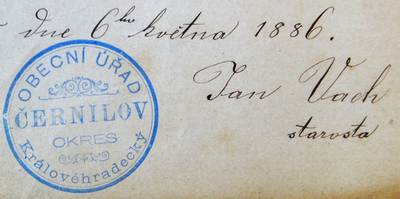 dne 6ho května 1886.
OBECNÍ ÚŘAD
ČERNILOV
OKRES
Královéhradecký
Jan Vach
starosta